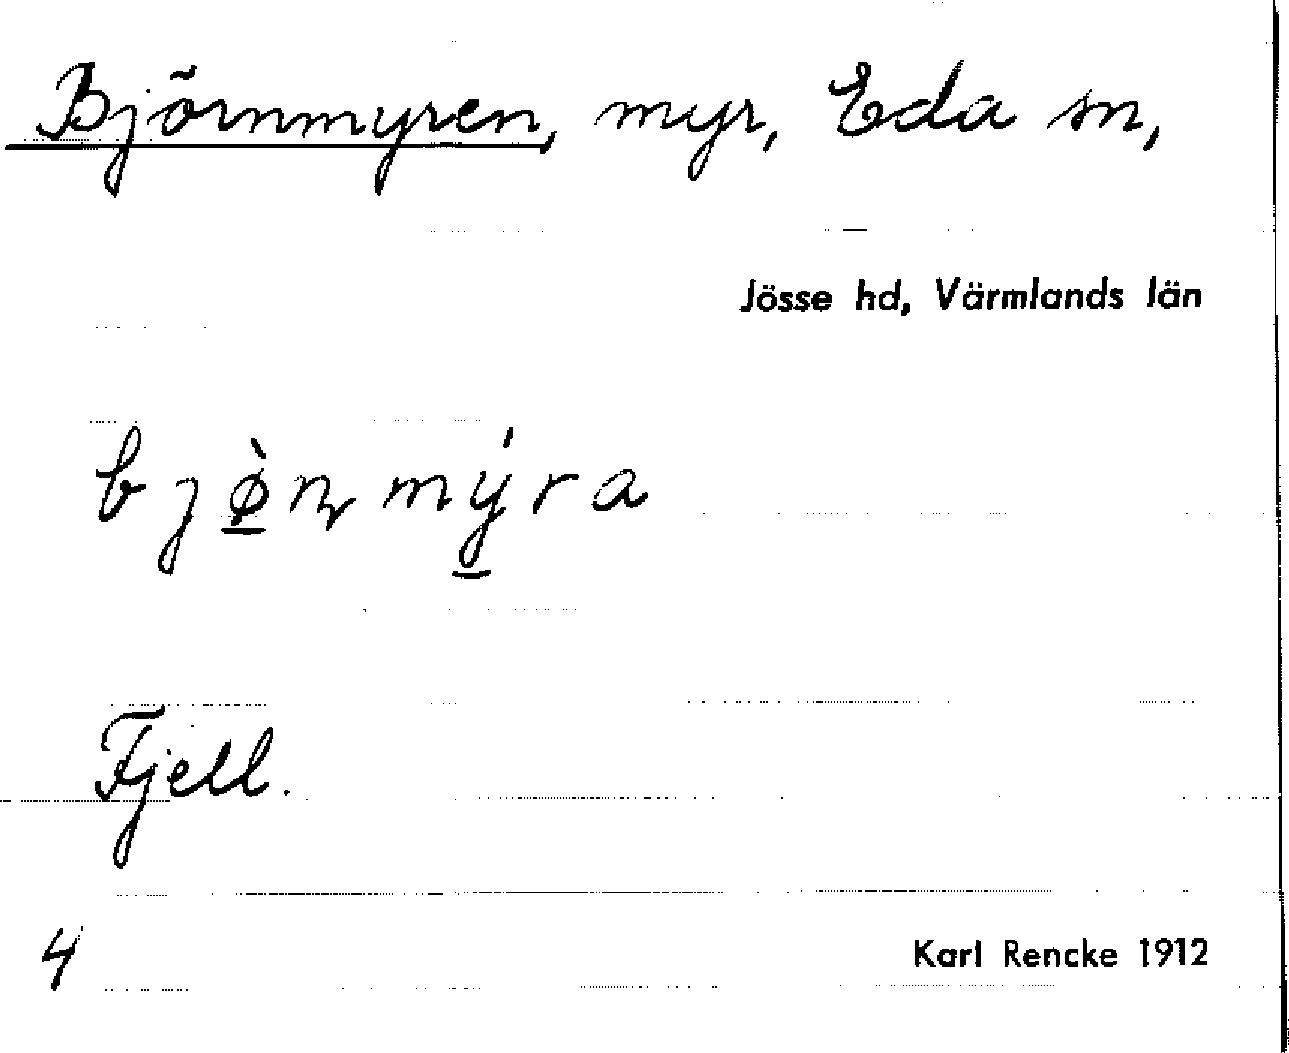 Björnmyren, myr, Eda sn,
Jösse hd, Värmlands län
bjø̱̀ɳmý̱ra
Fjell.
4
Karl Rencke 1912